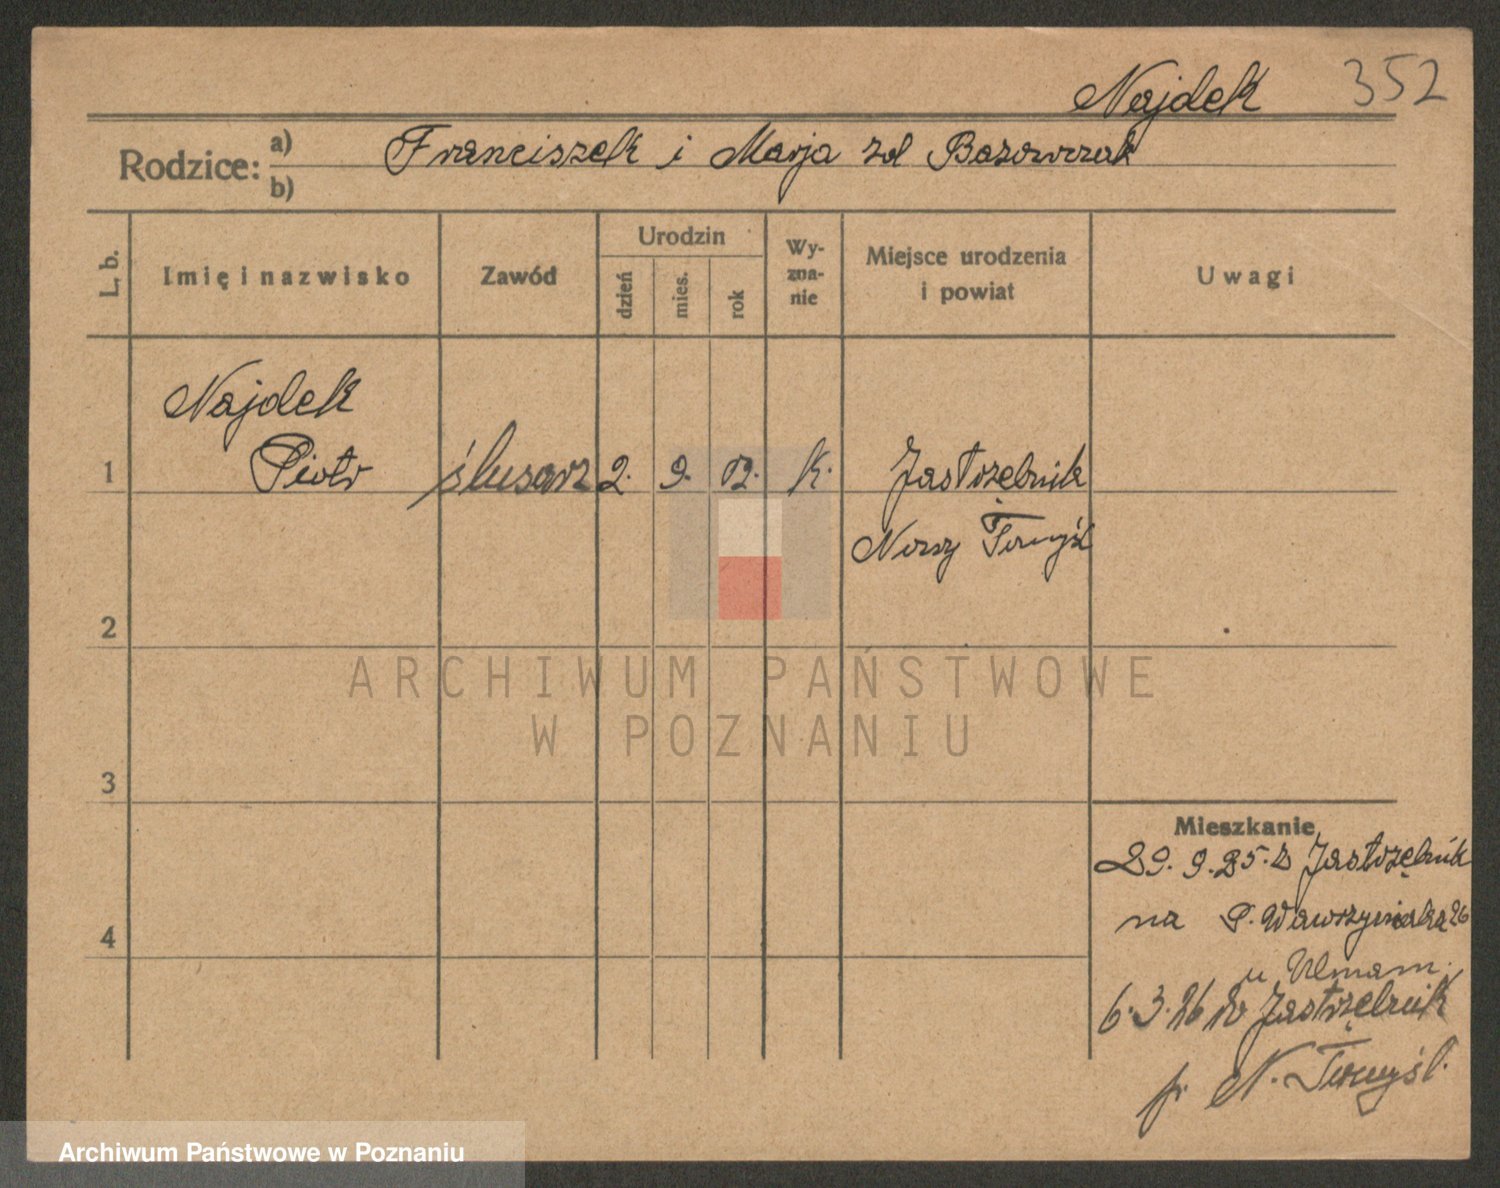 Najdek 352
Rodzice: a) Franciszek i Marja zd
b)
L. b. Imię i nazwisko Zawód Urodzin dzień mies. rok Wy-zna-nie Miejsce urodzenia i powiat Uwagi
Najdek
1 Piotr ślusarz 2. 9. 12. k. Jastrzębnik
Nowy Tomyśl
2
ARCHIWUM PAŃSTWOWE
W POZNANIU
3
Mieszkanie
29. 9. 25. z Jastrzębnik
na P. Wawrzyniaka 26
4
u
6. 3. 26 do Jastrzębnik
p. N. Tomyśl.
Archiwum Państwowe w Poznaniu